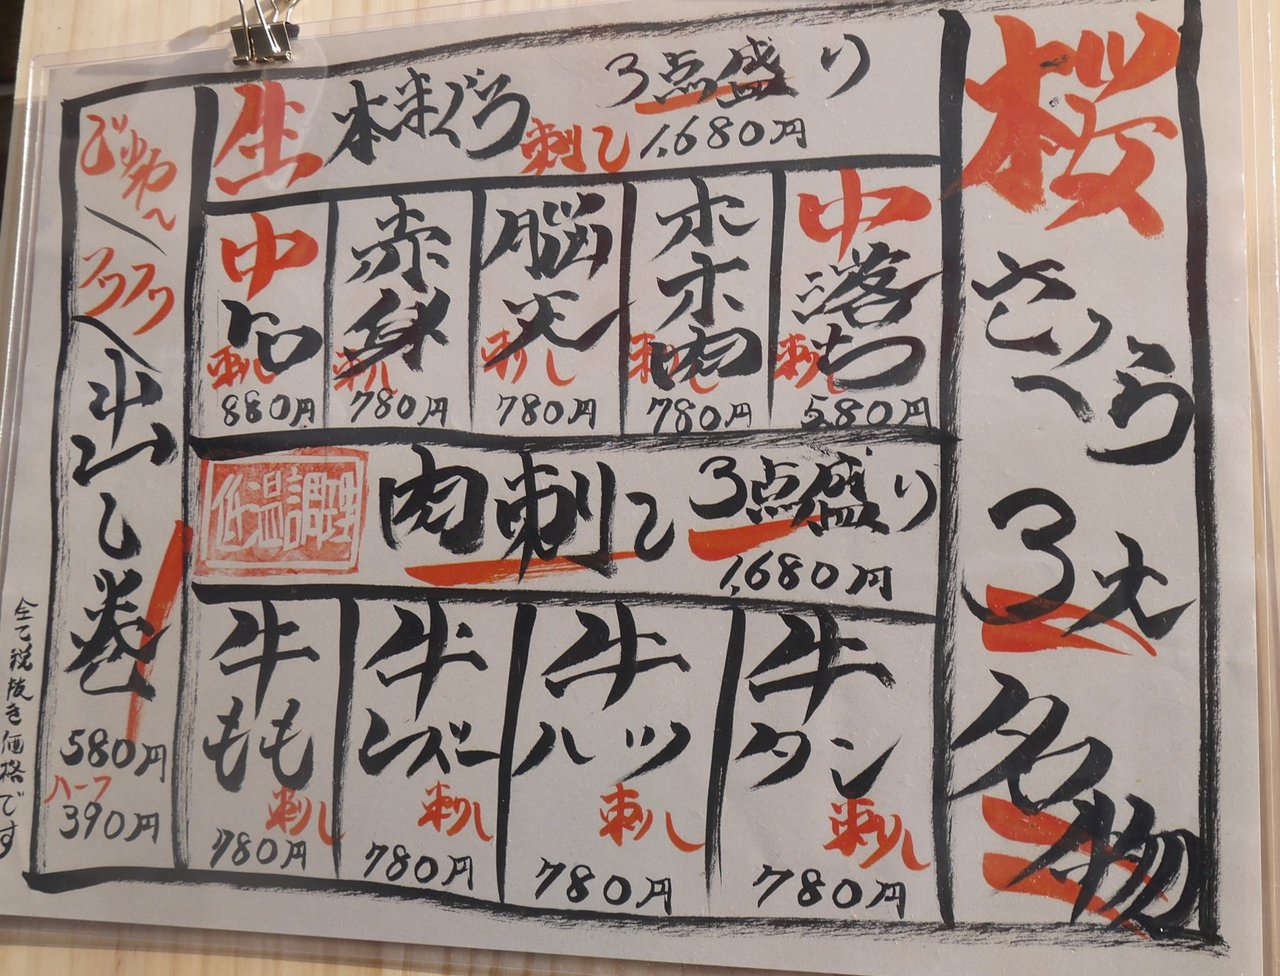 桜
さくら
3大
名物
生本まぐろ刺し
3点盛り
1,680円
中落ち
刺し
580円
ホホ肉
刺し
780円
脳天
刺し
780円
赤身
刺し
780円
中トロ
刺し
880円
低温調理
肉刺し
3点盛り
1,680円
牛タン
刺し
780円
牛ハツ
刺し
780円
牛レバー
刺し
780円
牛もも
刺し
780円
じゅわ〜
フワフワ
出し巻
580円
ハーフ
390円
全て税抜き価格です